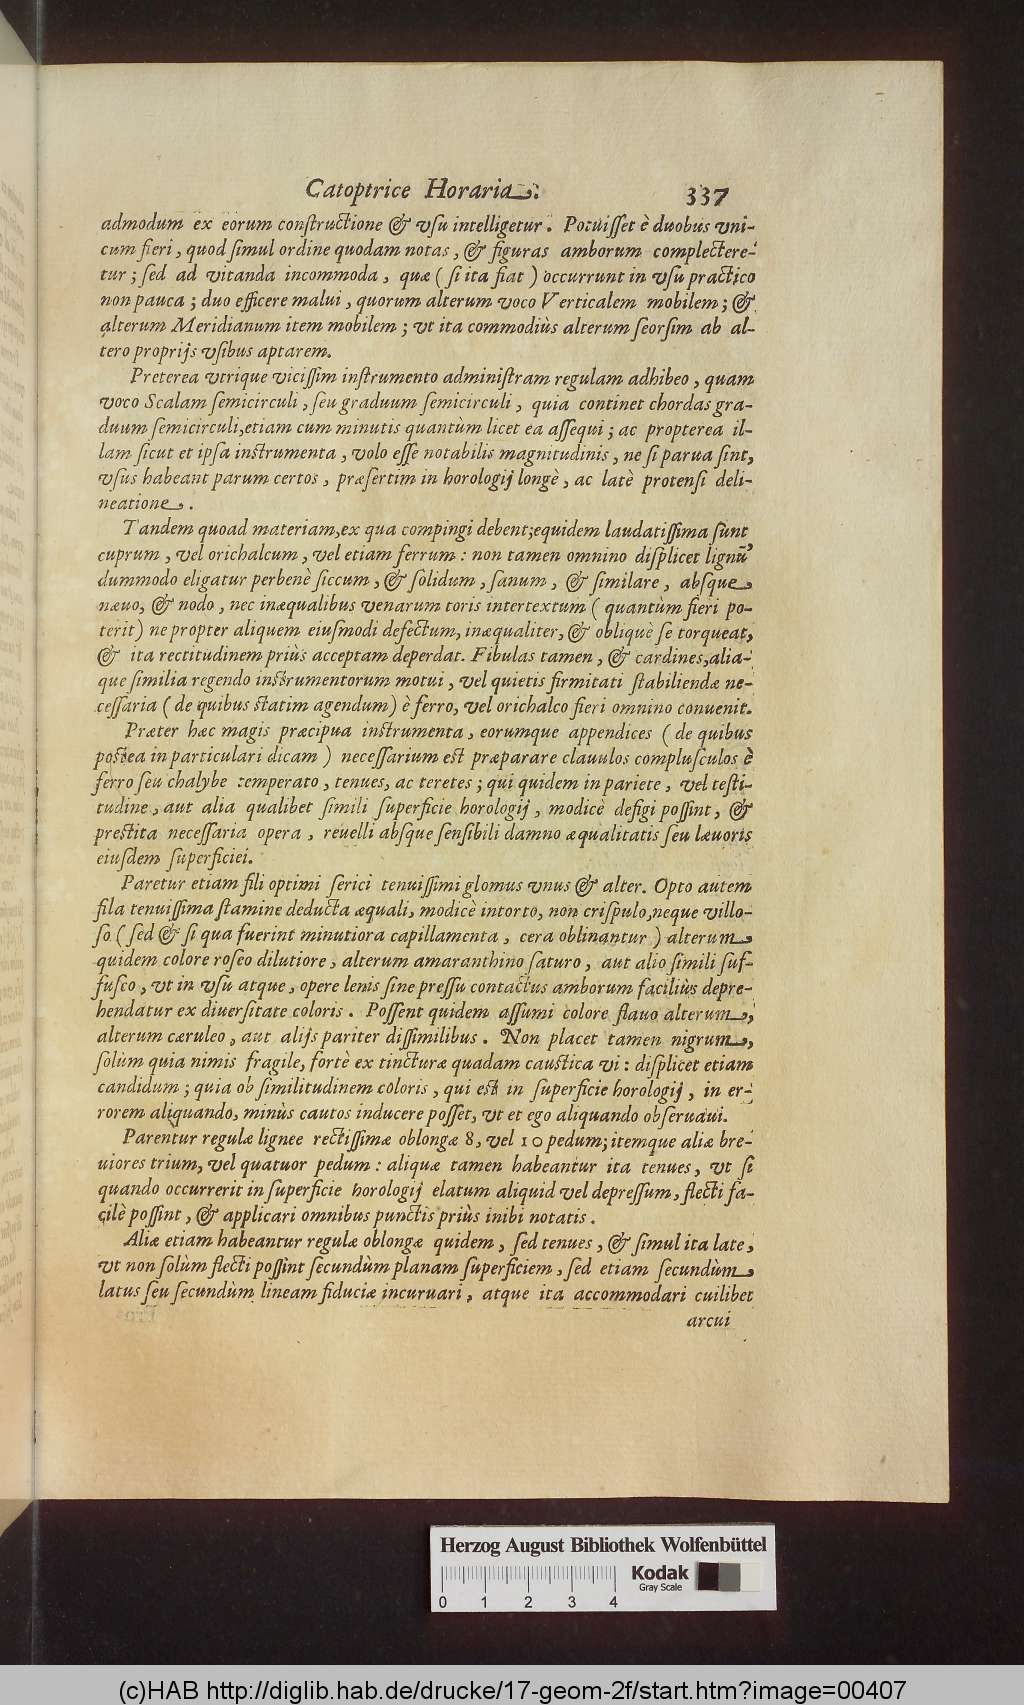 Catoptrice Horaria. 337
admodum ex eorum conſtructione & vſu intelligetur. Potuiſſet è duobus vni-
cum fieri, quod ſimul ordine quodam notas, & figuras amborum complectere-
tur; ſed ad vitanda incommoda, quæ (ſi ita fiat) occurrunt in vſu practico
non pauca; duo efficere malui, quorum alterum voco Verticalem mobilem; &
alterum Meridianum item mobilem; vt ita commodiùs alterum ſeorſim ab al-
tero proprijs vſibus aptarem.
Preterea vtrique viciſſim inſtrumento adminiſtram regulam adhibeo, quam
voco Scalam ſemicirculi, ſeu graduum ſemicirculi, quia continet chordas gra-
duum ſemicirculi, etiam cum minutis quantùm licet ea aſſequi; ac propterea il-
lam ſicut et ipſa inſtrumenta, volo eſſe notabilis magnitudinis, ne ſi parua ſint,
vſus habeant parum certos, præſertim in horologij longè, ac latè protenſi deli-
neatione.
Tandem quoad materiam, ex qua compingi debent; equidem laudatiſſima ſunt
cuprum, vel orichalcum, vel etiam ferrum: non tamen omnino diſplicet lignũ
dummodo eligatur perbenè ſiccum, & ſolidum, ſanum, & ſimilare, abſque
næuo, & nodo, nec inæqualibus venarum toris intertextum (quantùm fieri po-
terit) ne propter aliquem eiuſmodi defectum, inæqualiter, & obliquè ſe torqueat,
& ita rectitudinem priùs acceptam deperdat. Fibulas tamen, & cardines, alia-
que ſimilia regendo inſtrumentorum motui, vel quietis firmitati ſtabiliendæ ne-
ceſſaria (de quibus ſtatim agendum) è ferro, vel orichalco fieri omnino conuenit.
Præter hæc magis præcipua inſtrumenta, eorumque appendices (de quibus
poſtea in particulari dicam) neceſſarium eſt præparare clauulos compluſculos è
ferro ſeu chalybe temperato, tenues, ac teretes; qui quidem in pariete, vel teſti-
tudine, aut alia qualibet ſimili ſuperficie horologij, modicè defigi poſſint, &
preſtita neceſſaria opera, reuelli abſque ſenſibili damno æqualitatis ſeu læuoris
eiuſdem ſuperficiei.
Paretur etiam fili optimi ſerici tenuiſſimi glomus vnus & alter. Opto autem
fila tenuiſſima ſtamine deducta æquali, modicè intorto, non criſpulo, neque villo-
ſo (ſed & ſi qua fuerint minutiora capillamenta, cera oblinantur) alterum
quidem colore roſeo dilutiore, alterum amaranthino ſaturo, aut alio ſimili ſuf-
fuſco, vt in vſu atque, opere lenis ſine preſſu contactus amborum faciliùs depre-
hendatur ex diuerſitate coloris. Poſſent quidem aſſumi colore flauo alterum,
alterum cæruleo, aut alijs pariter diſſimilibus. Non placet tamen nigrum,
ſolùm quia nimis fragile, fortè ex tincturæ quadam cauſtica vi: diſplicet etiam
candidum; quia ob ſimilitudinem coloris, qui eſt in ſuperficie horologij, in er-
rorem aliquando, minùs cautos inducere poſſet, vt et ego aliquando obſeruaui.
Parentur regulæ lignee rectiſſimæ oblongæ 8, vel 10 pedum; itemque aliæ bre-
uiores trium, vel quatuor pedum: aliquæ tamen habeantur ita tenues, vt ſi
quando occurrerit in ſuperficie horologij elatum aliquid vel depreſſum, flecti fa-
cilè poſſint, & applicari omnibus punctis priùs inibi notatis.
Aliæ etiam habeantur regulæ oblongæ quidem, ſed tenues, & ſimul ita late,
vt non ſolùm flecti poſſint ſecundùm planam ſuperficiem, ſed etiam ſecundùm
latus ſeu ſecundùm lineam fiduciæ incuruari, atque ita accommodari cuilibet
arcui
Herzog August Bibliothek Wolfenbüttel
Kodak
Gray Scale
0 1 2 3 4
(c)HAB http://diglib.hab.de/drucke/17-geom-2f/start.htm?image=00407